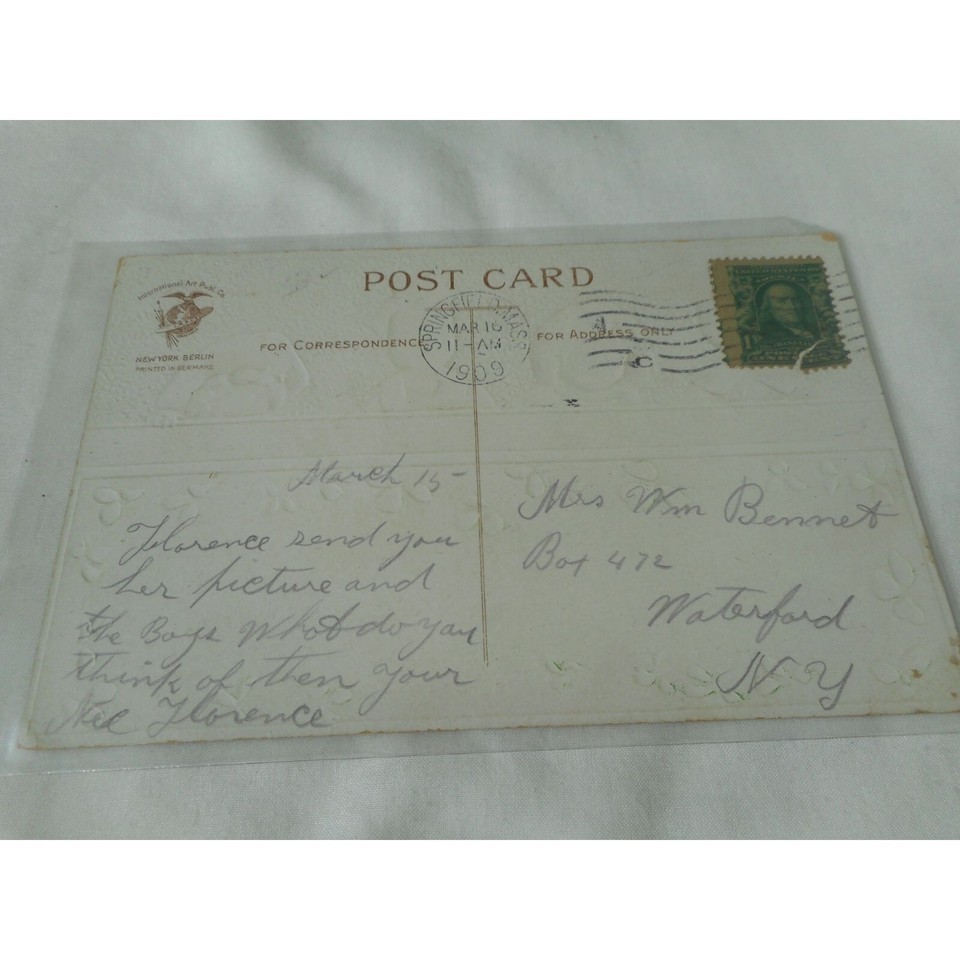 POST CARD
International Art Publ. Co.
NEW YORK BERLIN
PRINTED IN GERMANY
FOR CORRESPONDENCE
FOR ADDRESS ONLY
SPRINGFIELD, MASS.
MAR 16
11-AM
1909
March 15-
Florence send you
her picture and
the Boys What do you
think of then your
Florence
Mrs Wm Bennet
Box 472
Waterford
N Y